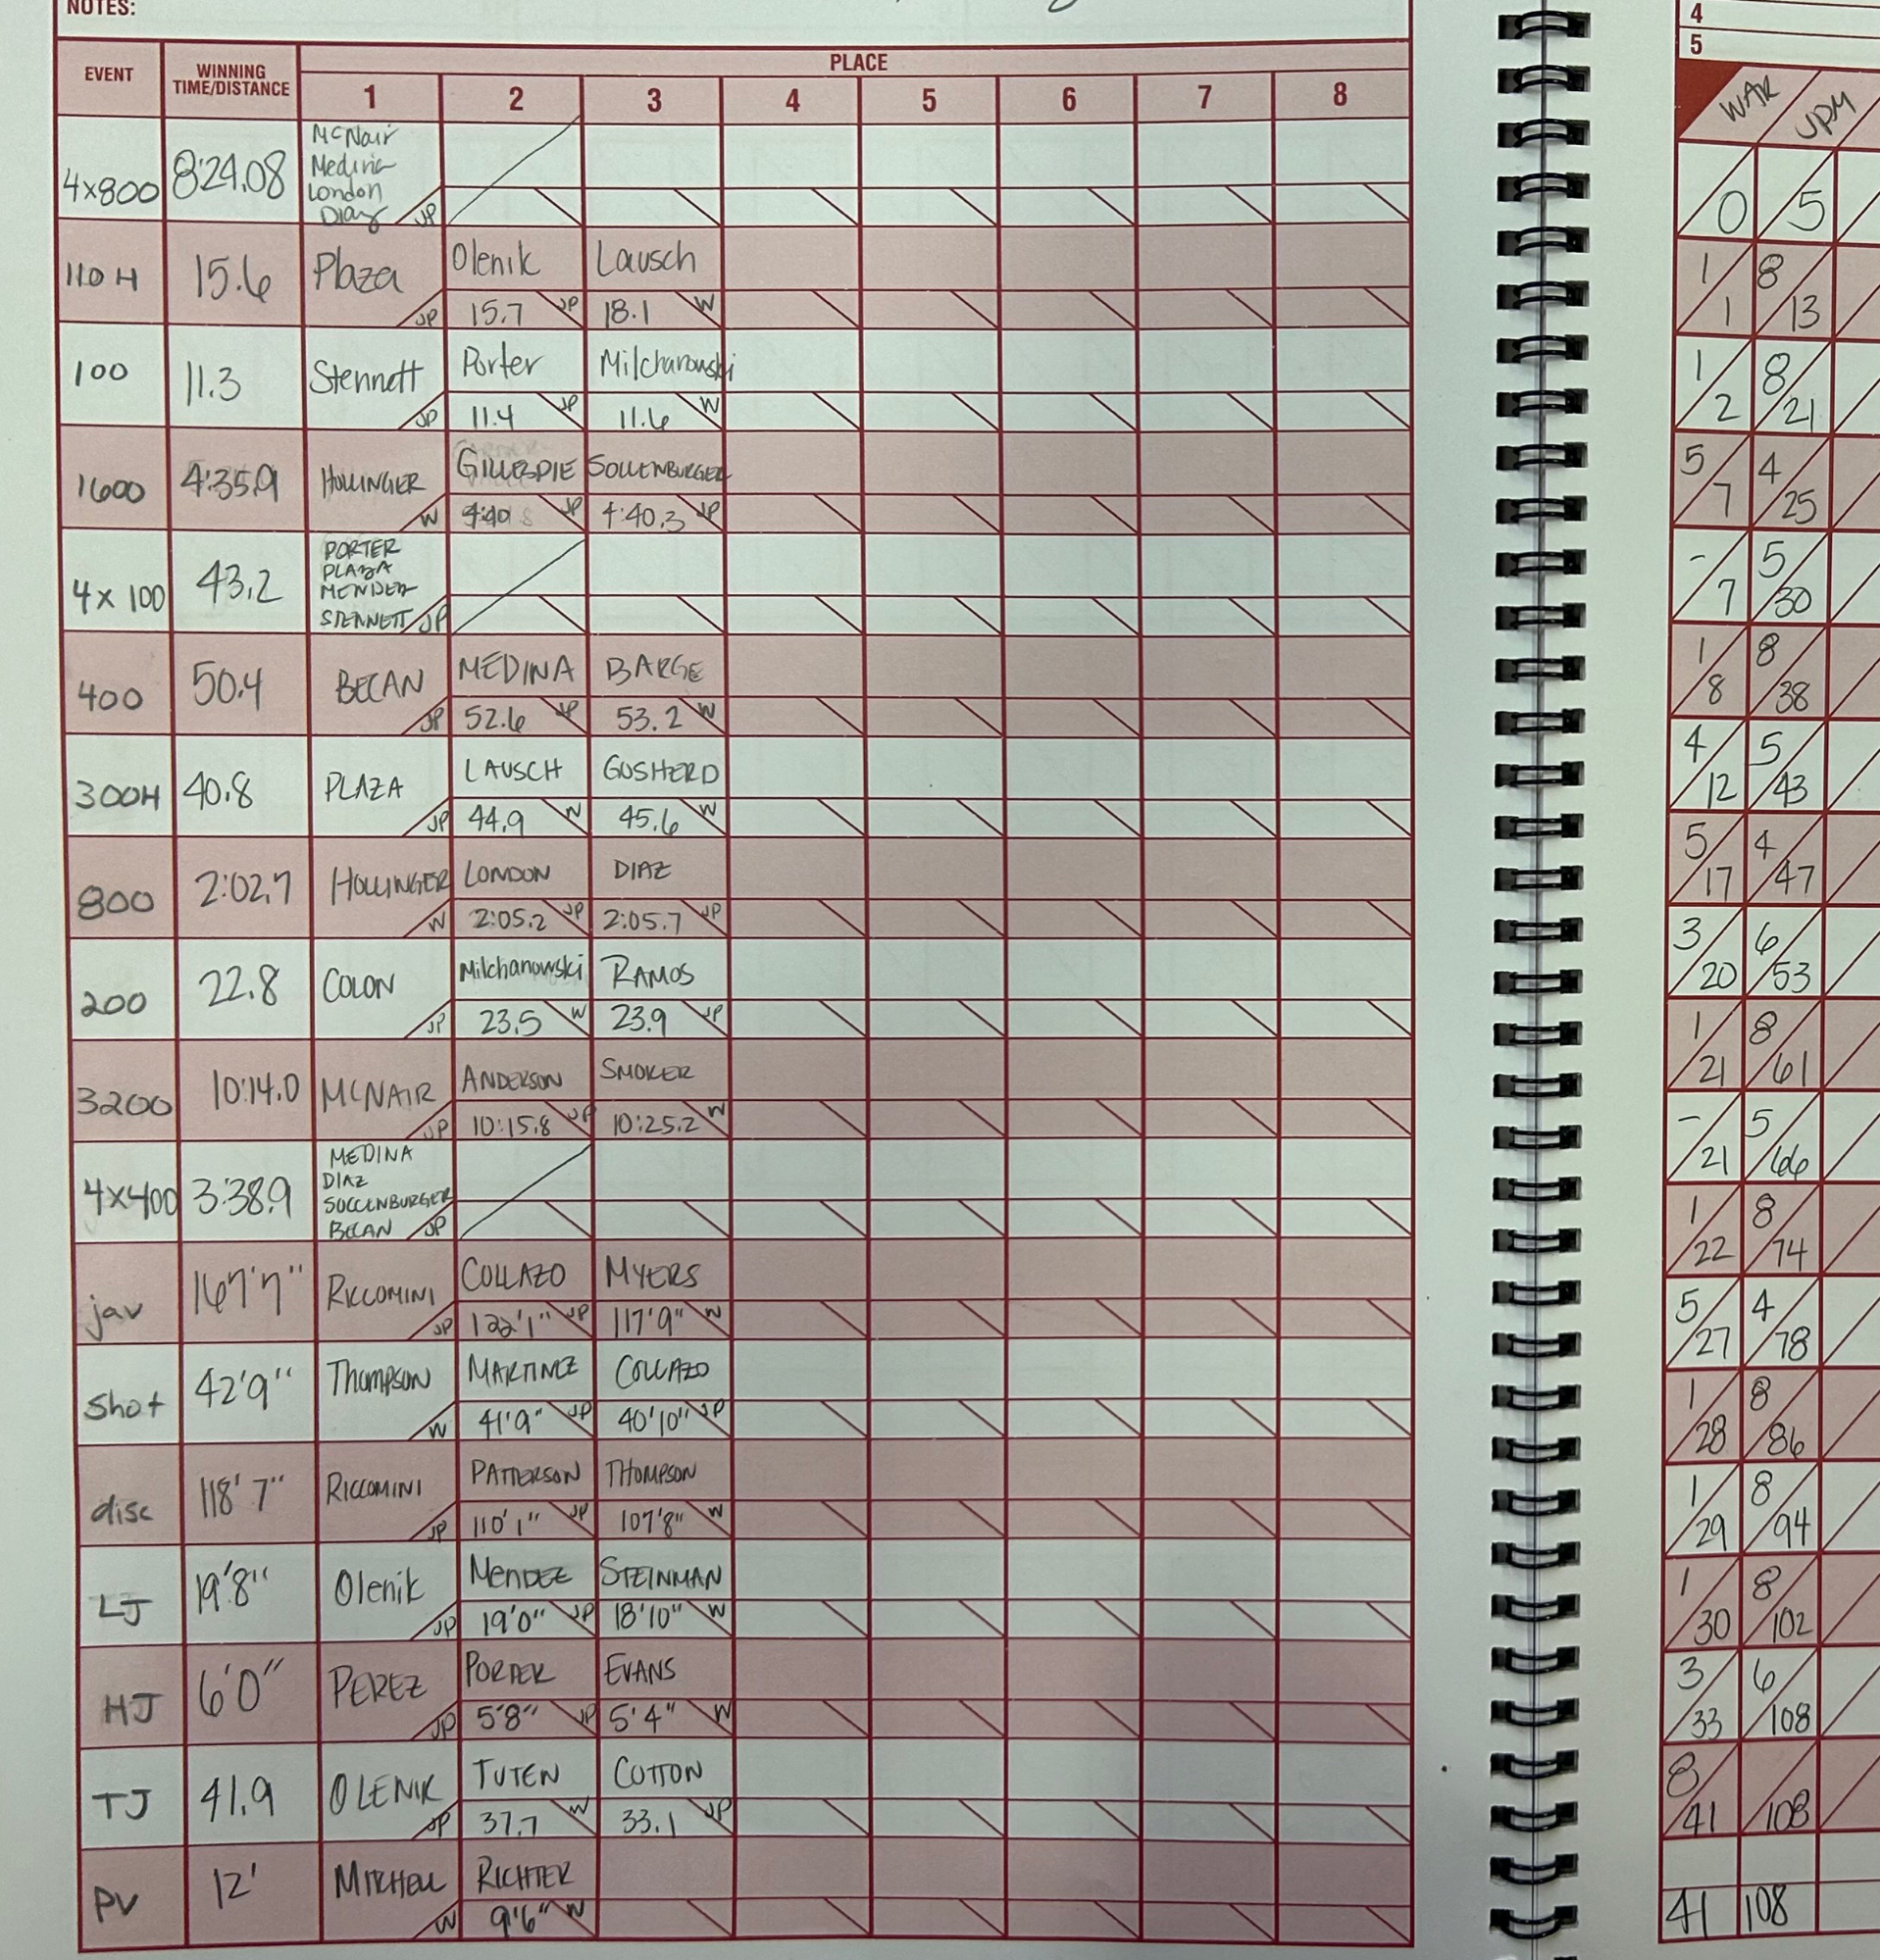 NOTES:
4
5
EVENT WINNING TIME/DISTANCE PLACE
1 2 3 4 5 6 7 8
WAR JPM
4x800 8:24.08 McNair Medina London Diaz JP
0 5
110 H 15.6 Plaza JP Olenik 15.7 JP Lausch 18.1 W
1 1 8 13
100 11.3 Stennett JP Porter 11.4 JP Milchanowski 11.6 W
1 2 8 21
1600 4:35.9 HOLLINGER W GILLESPIE 4:40 JP SOLLENBURGER 4:40.3 JP
5 7 4 25
4x100 43.2 PORTER PLAZA MENDEZ STENNETT JP
- 7 5 30
400 50.4 BECAN JP MEDINA 52.6 JP BARGE 53.2 W
1 8 8 38
300H 40.8 PLAZA JP LAUSCH 44.9 W GOSHERD 45.6 W
4 12 5 43
800 2:02.7 HOLLINGER W LONDON 2:05.2 JP DIAZ 2:05.7 JP
5 17 4 47
200 22.8 COLON JP Milchanowski 23.5 W RAMOS 23.9 JP
3 20 6 53
3200 10:14.0 MCNAIR JP ANDERSON 10:15.8 JP SMOKER 10:25.2 W
1 21 8 61
4x400 3:38.9 MEDINA DIAZ SOLLENBURGER BECAN JP
- 21 5 66
jav 167'7" RICCOMINI JP COLLAZO 122'1" JP MYERS 117'9" W
1 22 8 74
Shot 42'9" Thompson W MARTINEZ 41'9" JP COLLAZO 40'10" JP
5 27 4 78
disc 118'7" RICCOMINI JP PATTERSON 110'1" JP THOMPSON 107'8" W
1 28 8 86
LJ 19'8" Olenik JP MENDEZ 19'0" JP STEINMAN 18'10" W
1 29 8 94
HJ 6'0" PEREZ JP PORTER 5'8" JP EVANS 5'4" W
1 30 8 102
TJ 41.9 OLENIK JP TUTEN 37.7 W COTTON 33.1 JP
3 33 6 108
PV 12' MITCHELL W RICHTER 9'6" W
8 41 108
41 108